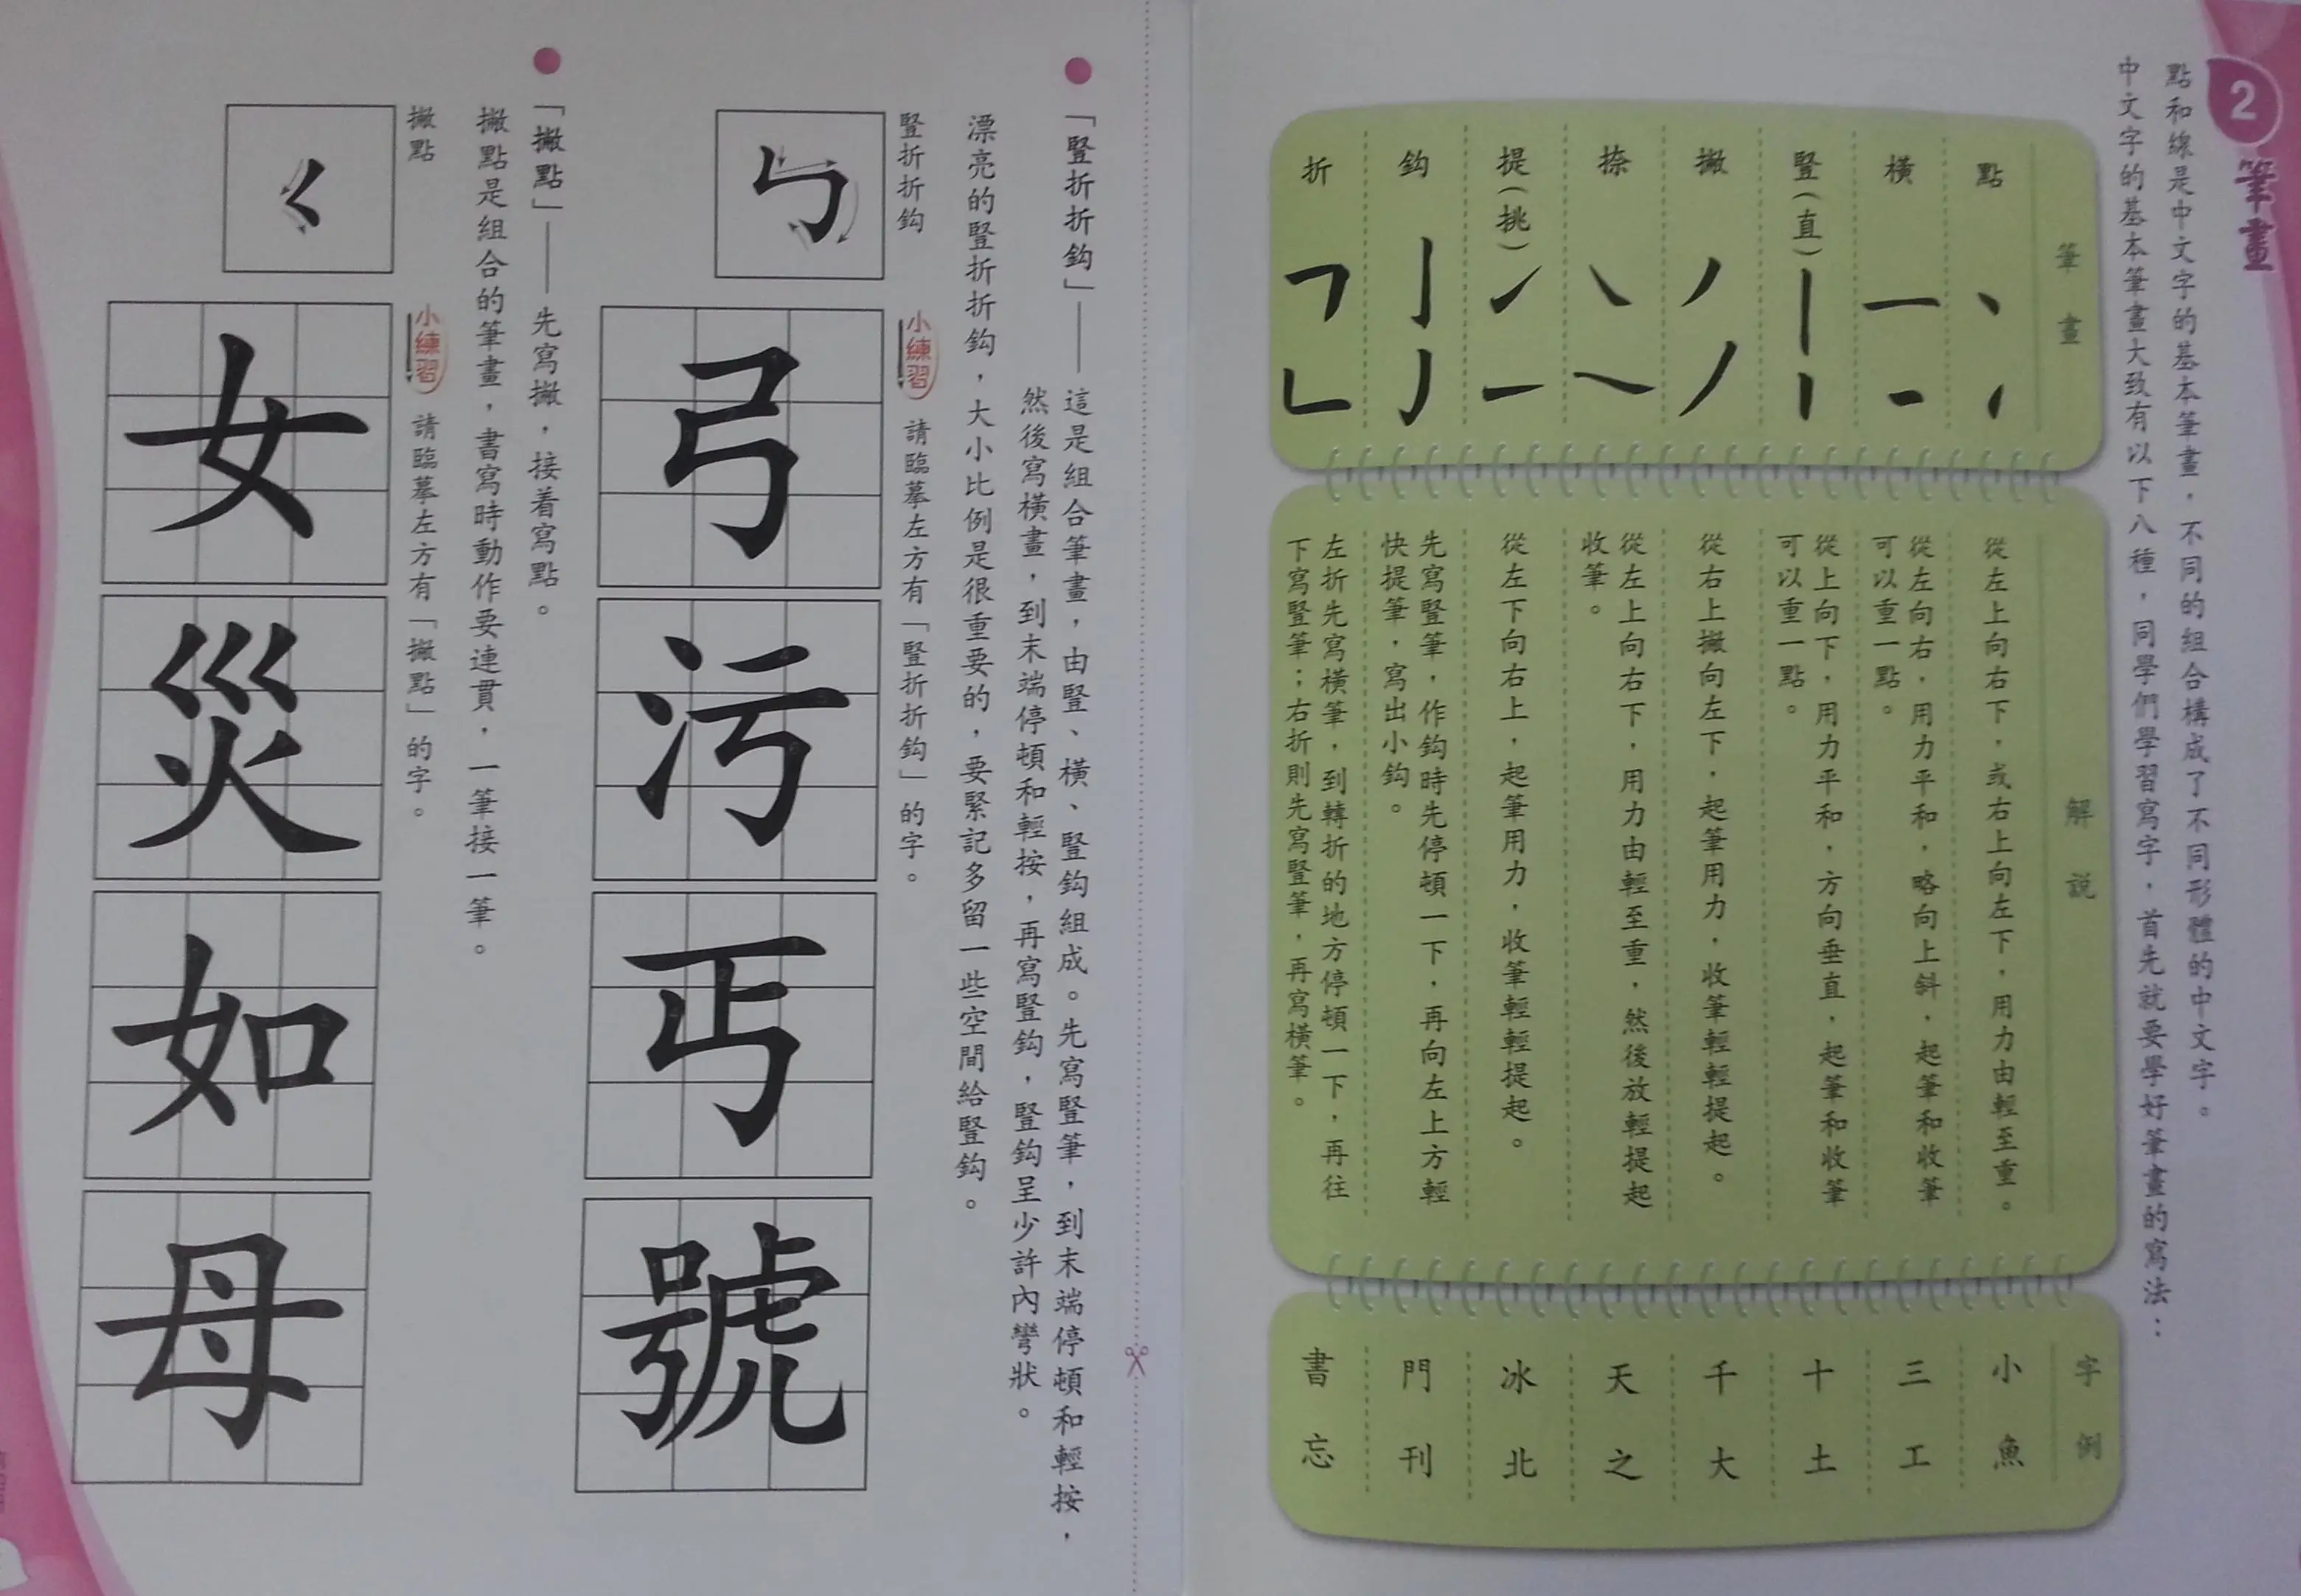 2 筆畫
點和線是中文字的基本筆畫，不同的組合構成了不同形體的中文字。
中文字的基本筆畫大致有以下八種，同學們學習寫字，首先就要學好筆畫的寫法：
筆畫
解說
字例
點
從左上向右下，或右上向左下，用力由輕至重。
小 魚
橫
從左向右，用力平和，略向上斜，起筆和收筆
可以重一點。
三 工
豎（直）
從上向下，用力平和，方向垂直，起筆和收筆
可以重一點。
十 土
撇
從右上撇向左下，起筆用力，收筆輕輕提起。
千 大
捺
從左上向右下，用力由輕至重，然後放輕提起
收筆。
天 之
提（挑）
從左下向右上，起筆用力，收筆輕輕提起。
冰 北
鈎
先寫豎筆，作鈎時先停頓一下，再向左上方輕
快提筆，寫出小鈎。
門 刊
折
左折先寫橫筆，到轉折的地方停頓一下，再往
下寫豎筆；右折則先寫豎筆，再寫橫筆。
書 忘
「豎折折鈎」——這是組合筆畫，由豎、橫、豎鈎組成。先寫豎筆，到末端停頓和輕按，
然後寫橫畫，到末端停頓和輕按，再寫豎鈎，豎鈎呈少許內彎狀。
漂亮的豎折折鈎，大小比例是很重要的，要緊記多留一些空間給豎鈎。
豎折折鈎
小練習 請臨摹左方有「豎折折鈎」的字。
ㄣ
弓 污 丐 號
「撇點」——先寫撇，接着寫點。
撇點是組合的筆畫，書寫時動作要連貫，一筆接一筆。
撇點
小練習 請臨摹左方有「撇點」的字。
ㄑ
女 災 如 母